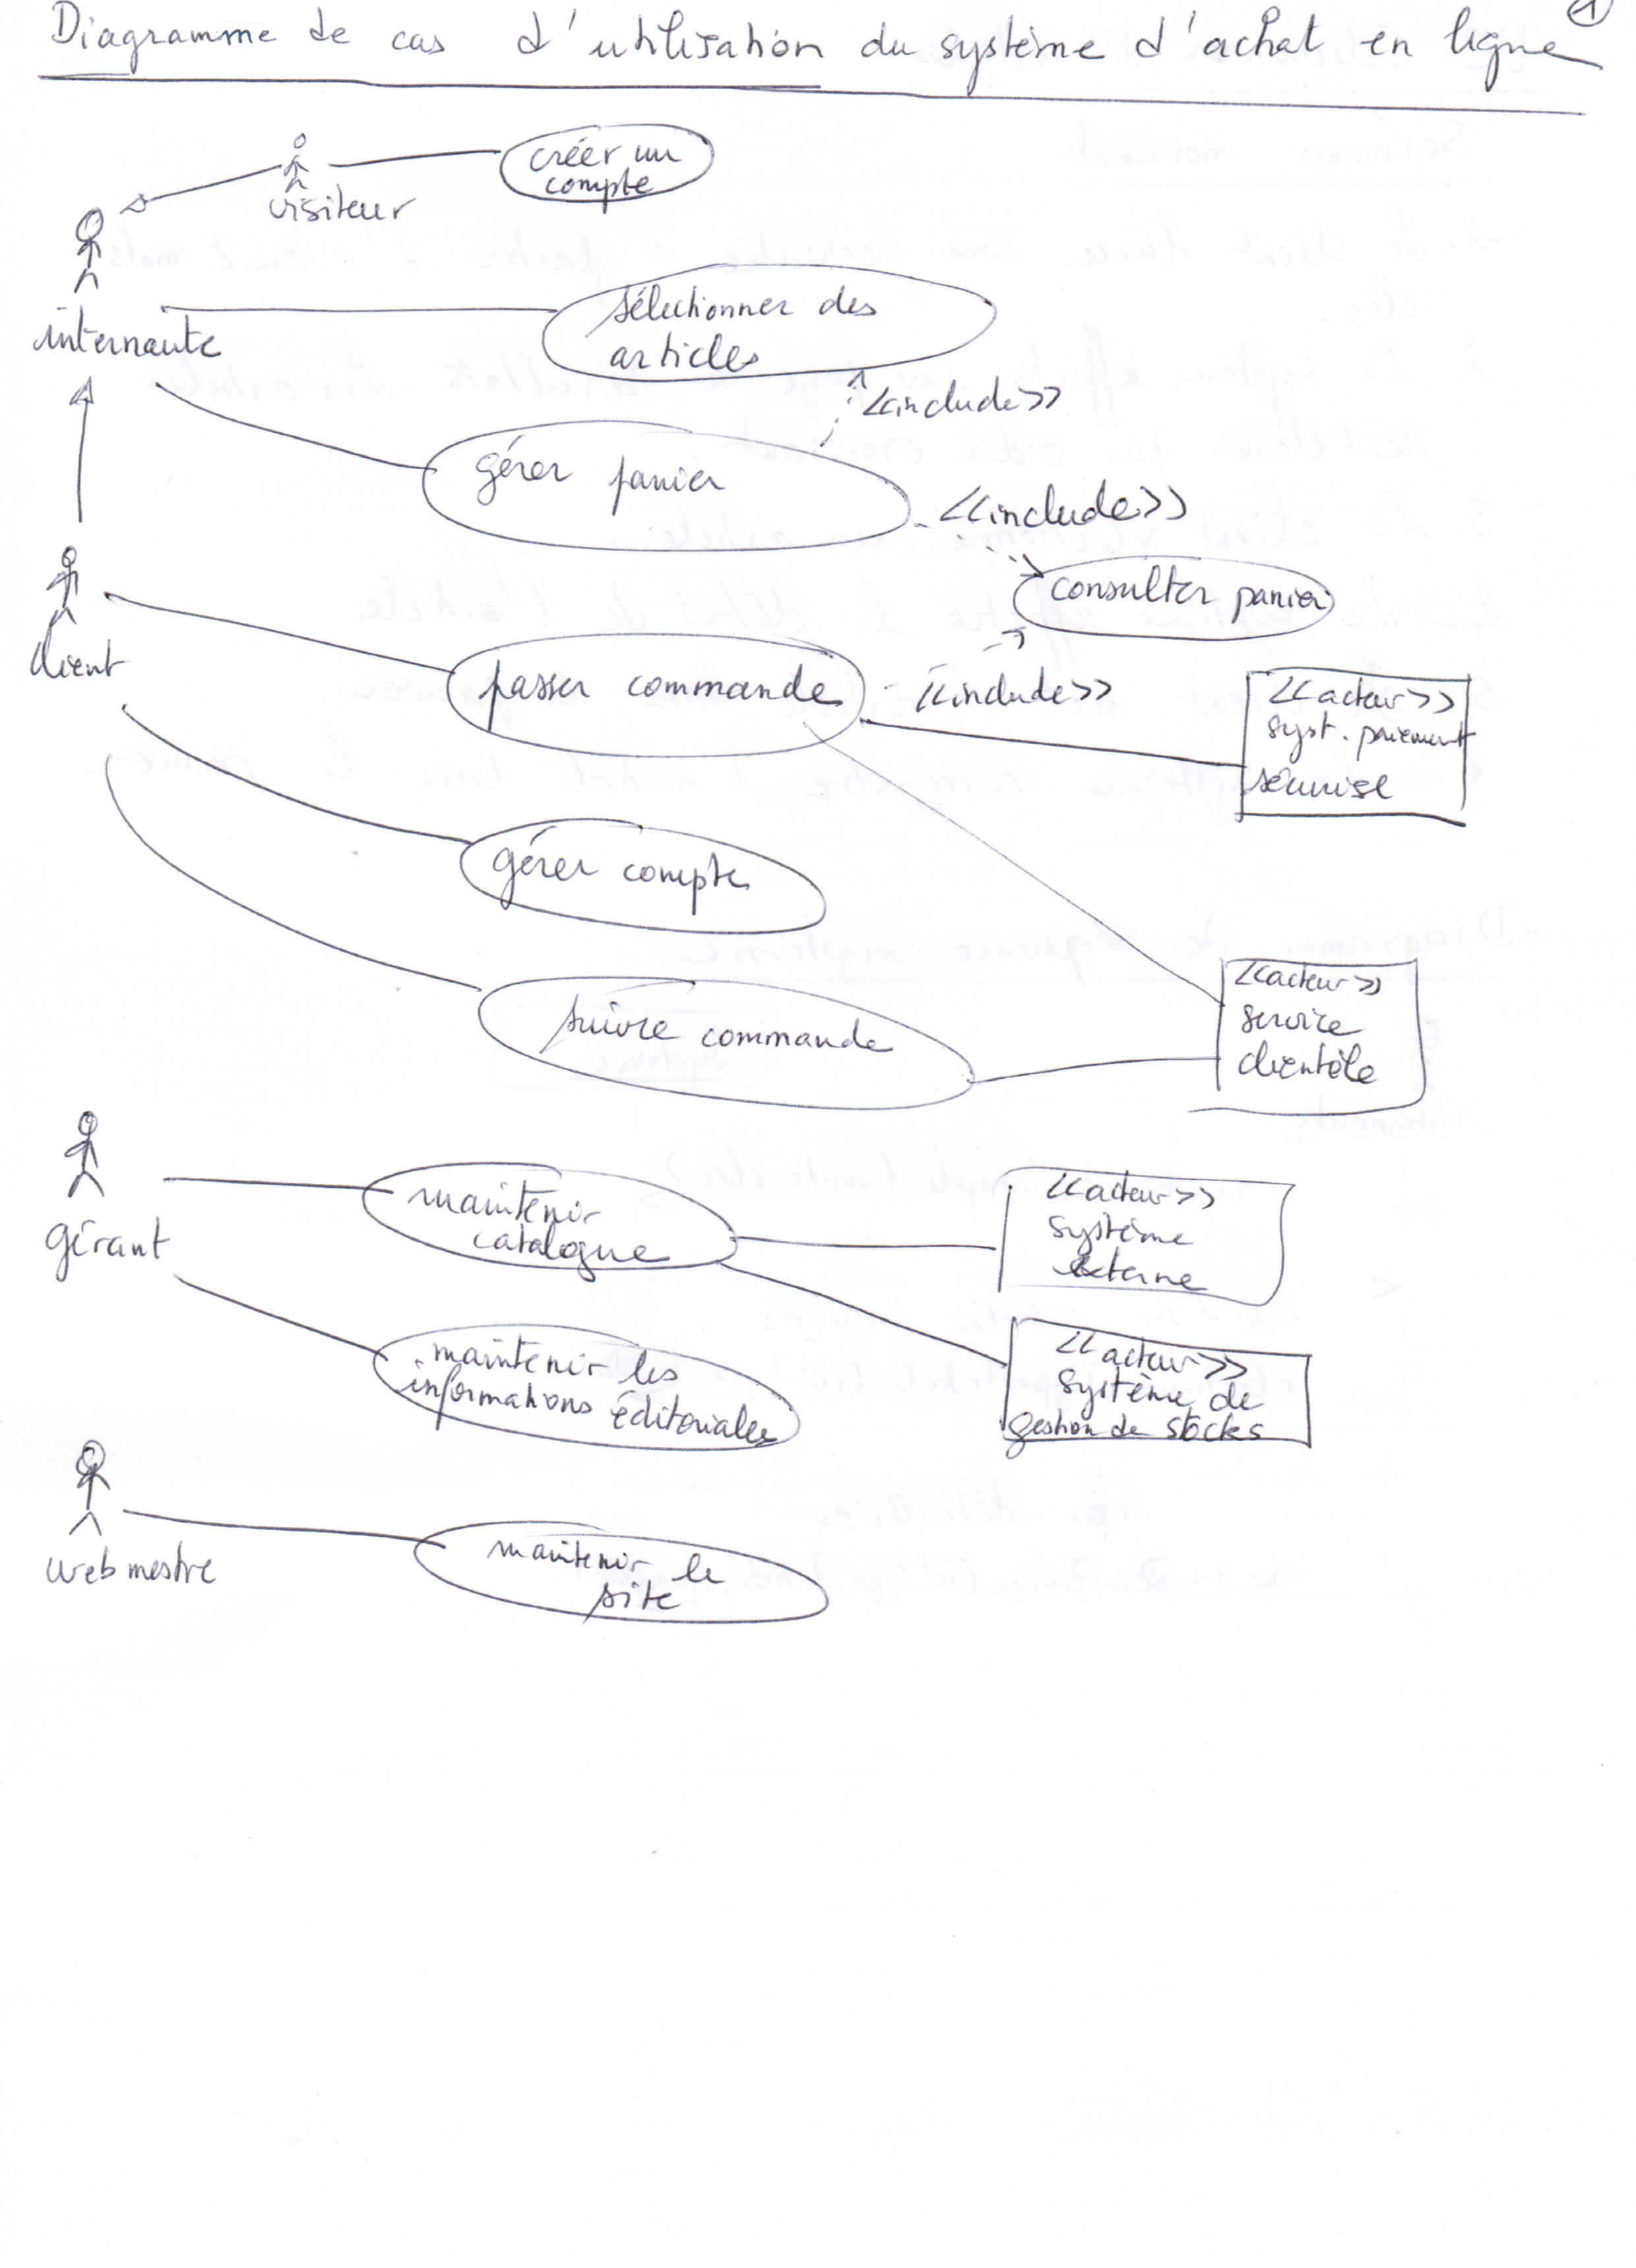 1
Diagramme de cas d'utilisation du système d'achat en ligne
créer un
compte
visiteur
internaute
sélectionner des
articles
<<include>>
gérer panier
<<include>>
consulter panier
client
passer commande
<<include>>
<<acteur>>
syst. paiement
sécurisé
gérer compte
suivre commande
<<acteur>>
service
clientèle
gérant
maintenir
catalogue
<<acteur>>
système
externe
maintenir les
informations éditoriales
<<acteur>>
système de
gestion de stocks
webmestre
maintenir le
site